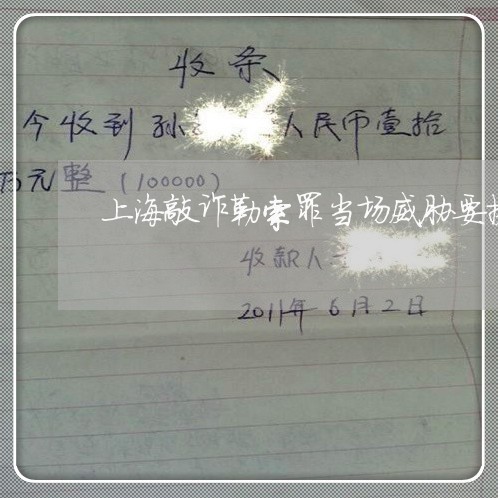 收条
今收到孙 人民币壹拾
万元整(100000)
上海敲诈勒索罪当场威胁要
收款人
2011年6月2日